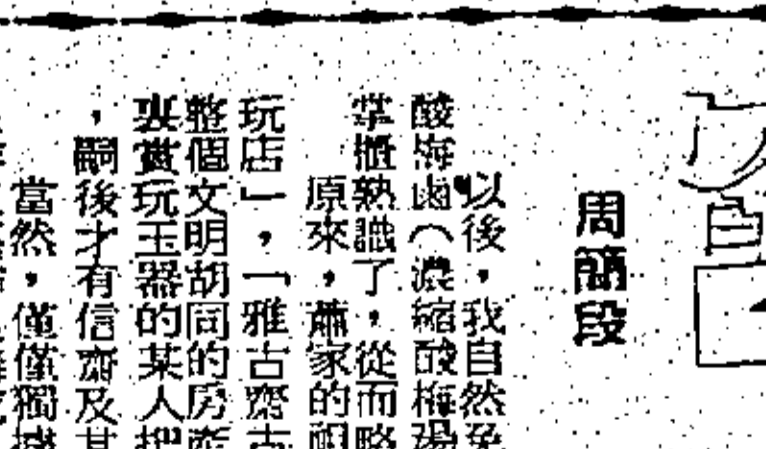 周簡段
以後,我自然免
酸梅鹵(濃縮酸梅湯
掌櫃熟識了,從而略
原來,蕭家的祖
玩店」,「雅古齋古
整個文明胡同的房產
裏賞玩玉器的某人把
,嗣後才有信齋及其
當然,僅僅獨據